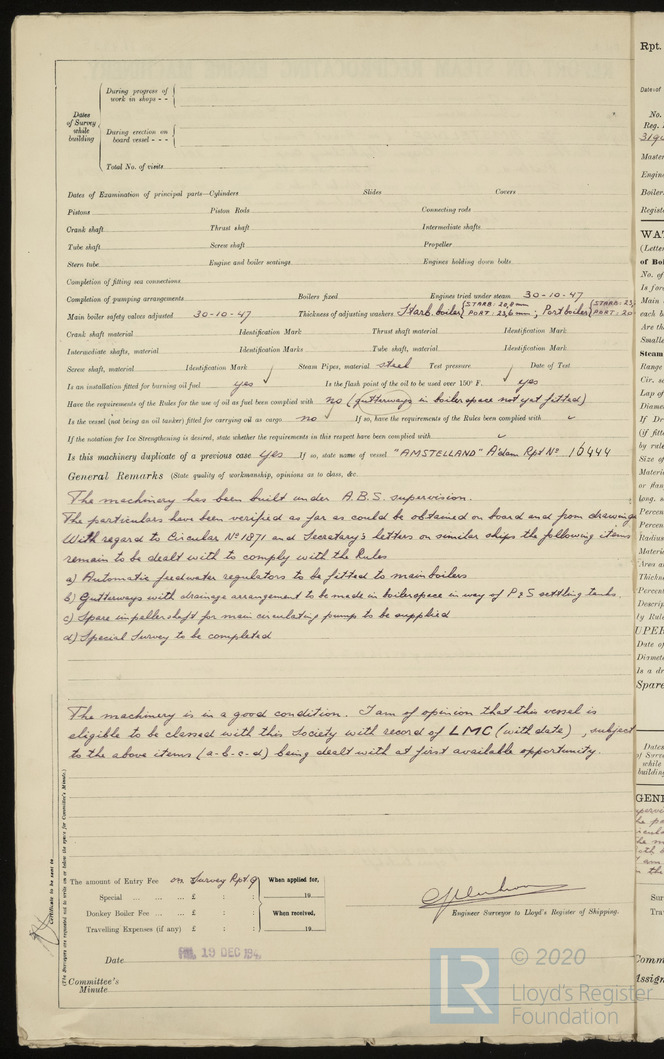 During progress of
work in shops - -
Dates
of Survey
while
building
During erection on
board vessel - - -
Total No. of visits
Dates of Examination of principal parts—Cylinders Slides Covers
Pistons Piston Rods Connecting rods
Crank shaft Thrust shaft Intermediate shafts
Tube shaft Screw shaft Propeller
Stern tube Engine and boiler seatings Engines holding down bolts
Completion of fitting sea connections
Completion of pumping arrangements Boilers fixed Engines tried under steam 30-10-47
Main boiler safety valves adjusted 30-10-47 Thickness of adjusting washers Starb. boiler { STARB: 20,8 mm PORT: 23,6 mm ; Port boiler { STARB: 23, PORT: 20
Crank shaft material Identification Mark Thrust shaft material Identification Mark
Intermediate shafts, material Identification Marks Tube shaft, material Identification Mark
Screw shaft, material Identification Mark Steam Pipes, material steel Test pressure Date of Test
Is an installation fitted for burning oil fuel yes Is the flash point of the oil to be used over 150° F. yes
Have the requirements of the Rules for the use of oil as fuel been complied with no (gutterways in boilerspace not yet fitted)
Is the vessel (not being an oil tanker) fitted for carrying oil as cargo no If so, have the requirements of the Rules been complied with
If the notation for Ice Strengthening is desired, state whether the requirements in this respect have been complied with
Is this machinery duplicate of a previous case yes If so, state name of vessel "AMSTELLAND" A'dam Rpt No 16444
General Remarks (State quality of workmanship, opinions as to class, &c.
The machinery has been built under A.B.S. supervision.
The particulars have been verified as far as could be obtained on board and from drawings
With regard to Circular No 1871 and Secretary's letters on similar ships the following items
remain to be dealt with to comply with the Rules
a) Automatic feedwater regulators to be fitted to main boilers
b) Gutterways with drainage arrangement to be made in boilerspace in way of P & S settling tanks.
c) Spare impeller shaft for main circulating pump to be supplied
d) Special Survey to be completed
The machinery is in a good condition. I am of opinion that this vessel is
eligible to be classed with this Society with record of LMC (with date), subject
to the above items (a-b-c-d) being dealt with at first available opportunity.
Certificate to be sent to
(The Surveyors are requested not to write on or below the space for Committee's Minute.)
The amount of Entry Fee on Survey Rpt 9 When applied for,
Special ... ... ... £ : : 19
Donkey Boiler Fee ... ... £ : : When received,
Travelling Expenses (if any) £ : : 19
Engineer Surveyor to Lloyd's Register of Shipping.
Date FRI. 19 DEC 194
Committee's
Minute
Rpt.
Date of
No.
Reg.
Master
Engin
Boiler
Regist
WAT
(Letter
of Boi
No. of
Is forc
Main
each b
Are th
Smalle
Steam
Range
Cir. s
Lap of
Diame
If D
(if fitt
by rule
Size of
Materi
or flan
long. s
Percen
Percen
Radius
Materi
Area a
Thickn
Percent
Descrip
by Rul
UPER
Date of
Diamet
Is a dr
Spare
Dates
of Surve
while
building
GENE
Sur
Tra
Comm
Assign
LR
© 2020
Lloyd's Register
Foundation